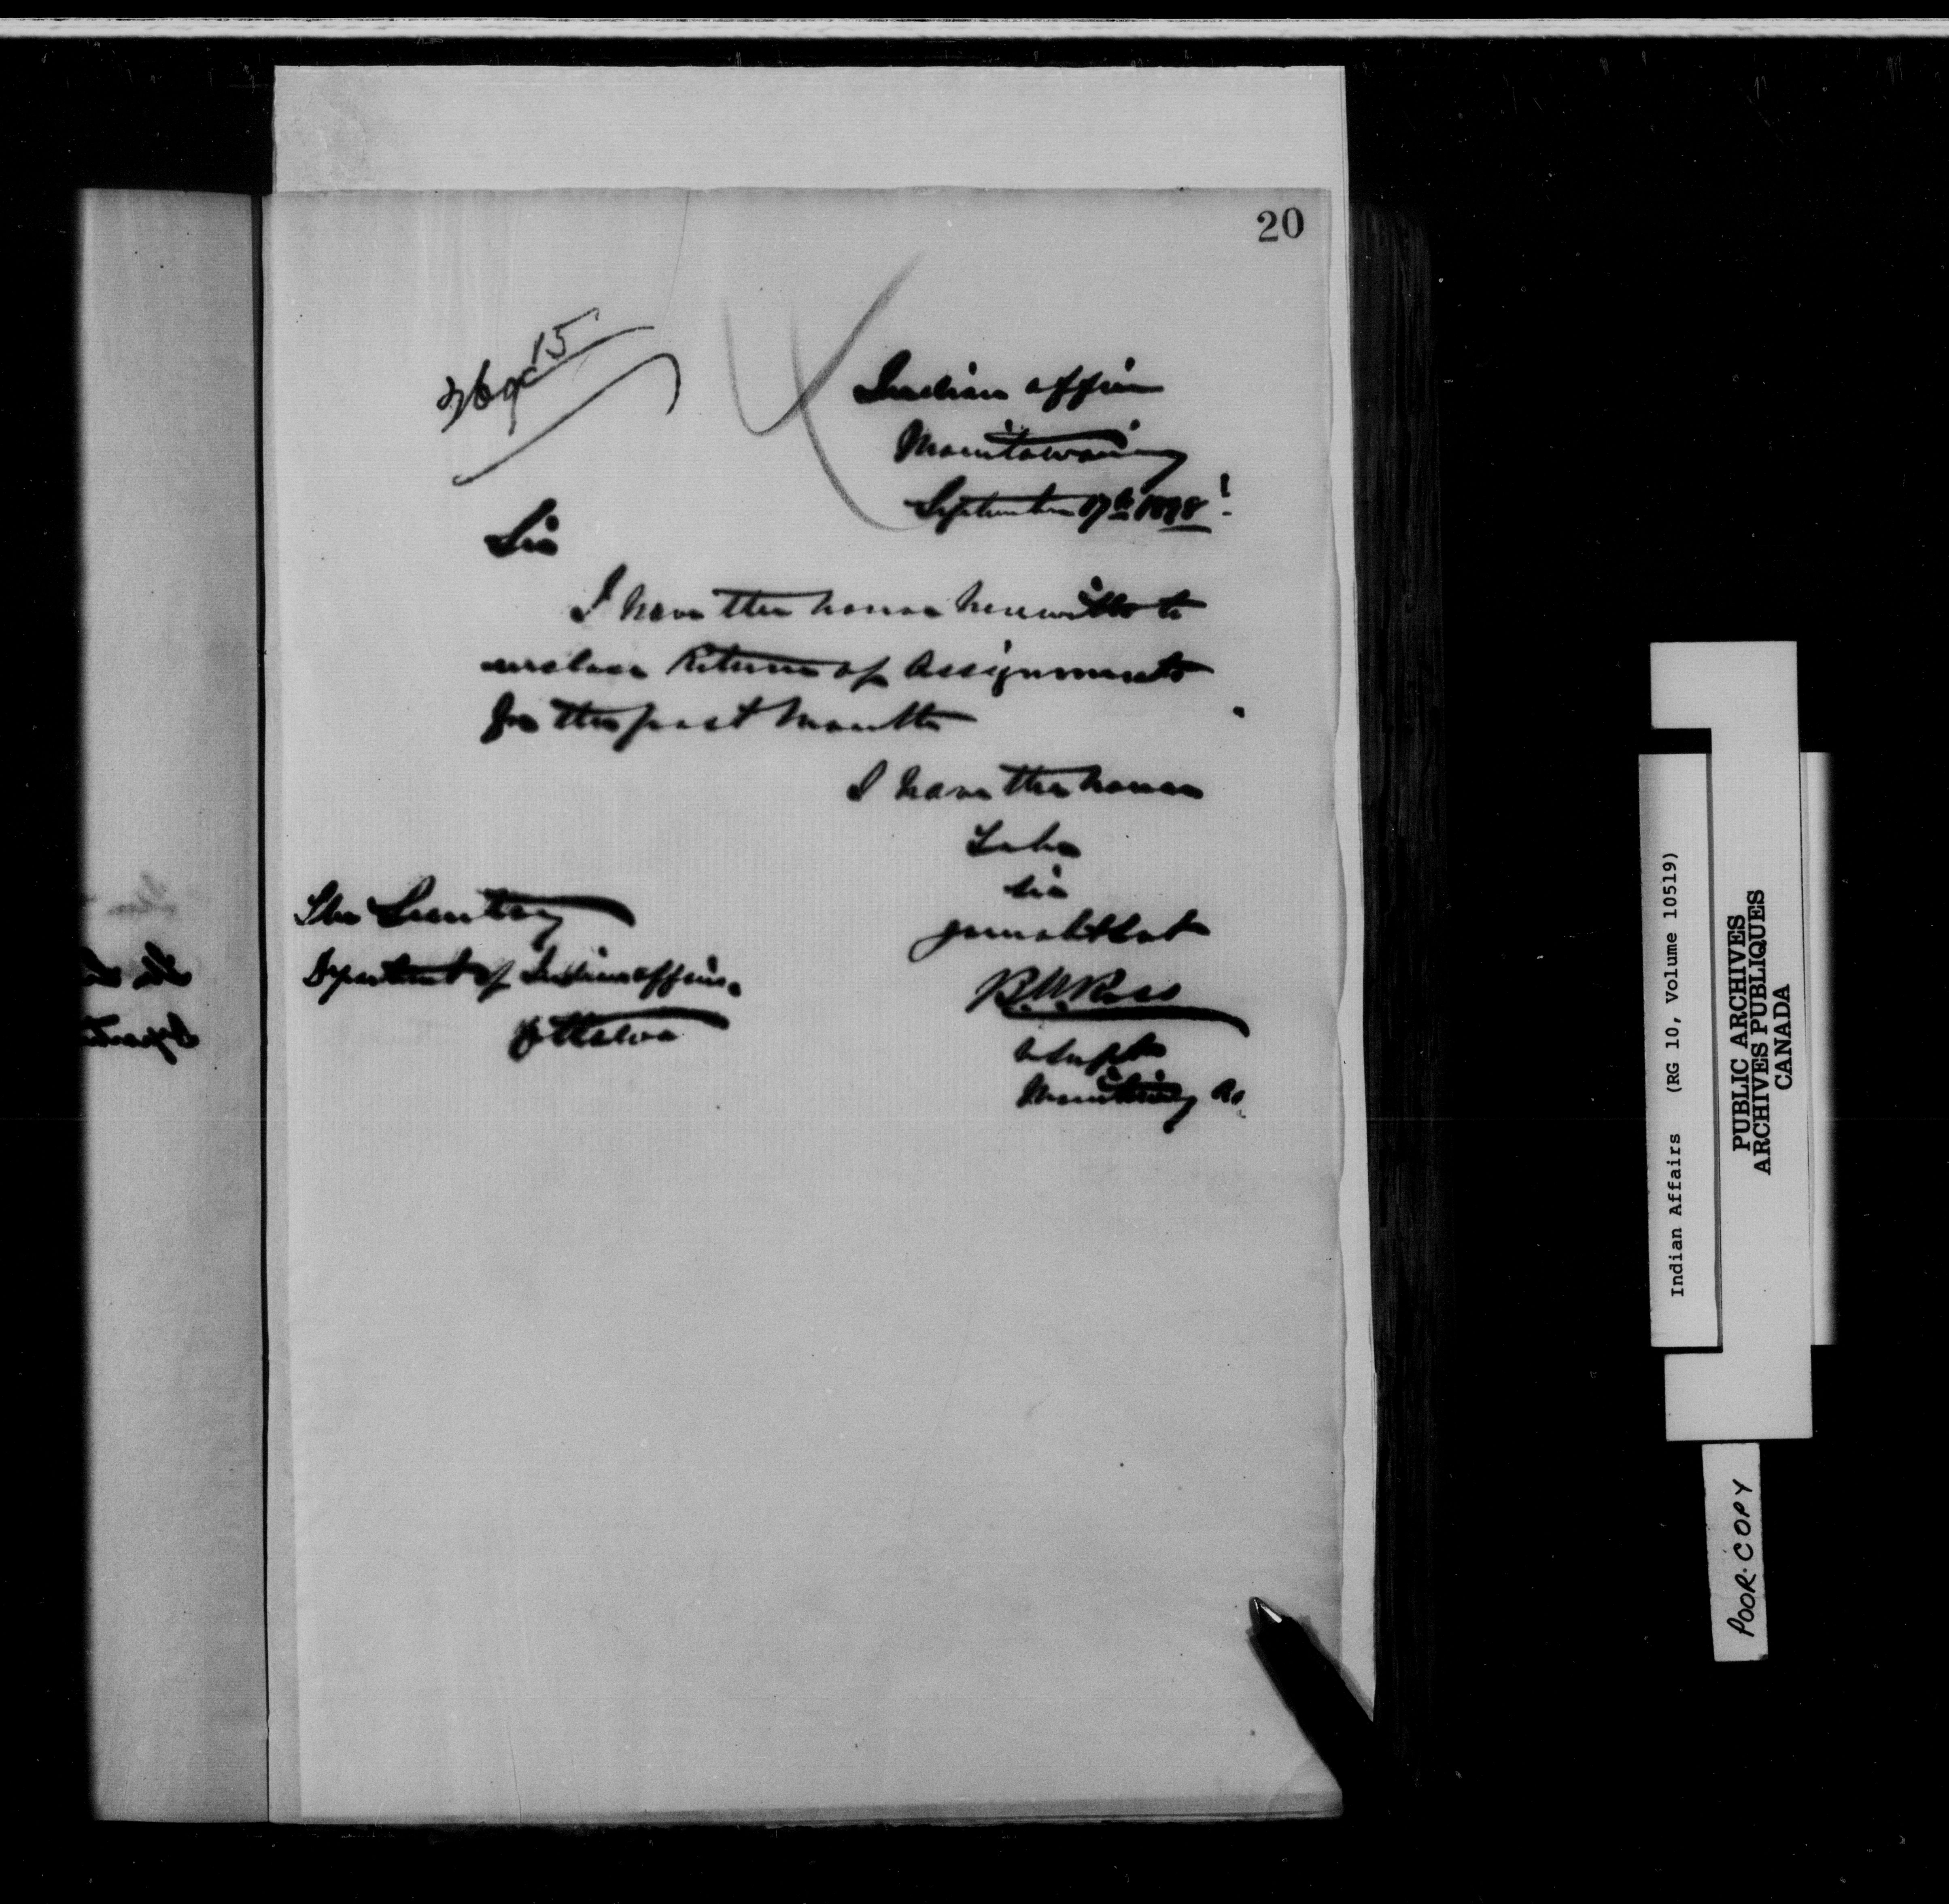 20
15
Indian Office
Manitowaning
September 17th 1898
Sir
I have the honor herewith to
enclose Returns of Assignments
for the past month
I have the honor
to be
Sir
your obt Servt
B.W. Ross
Supt
Manitowaning
The Secretary
Department of Indian Affairs
Ottawa
Indian Affairs (RG 10, Volume 10519)
PUBLIC ARCHIVES
ARCHIVES PUBLIQUES
CANADA
POOR COPY